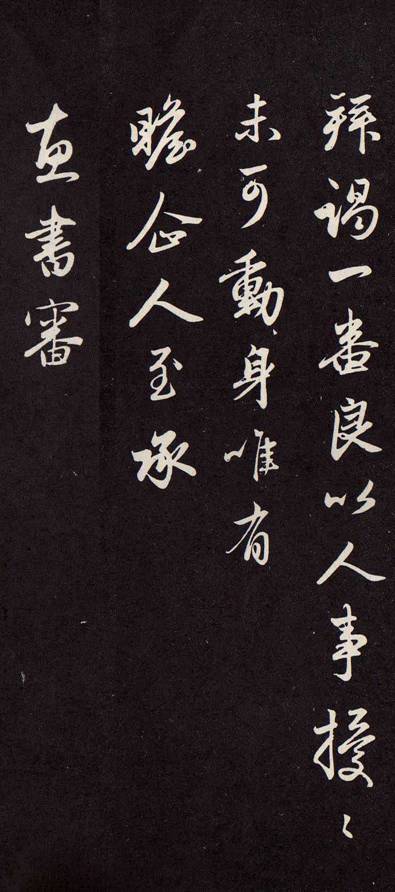 拜谒一番良以人事擾〻
未可動身唯有
瞻企人至承
惠書審